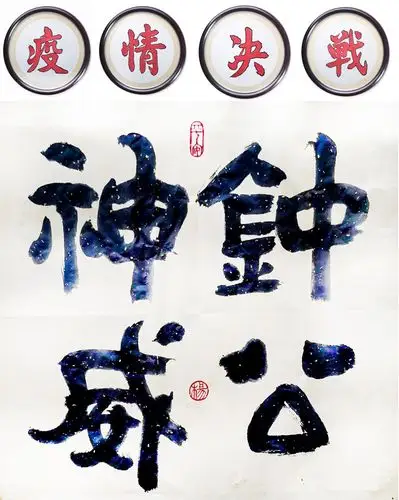 疫情决戦
鈡公
神威
楊